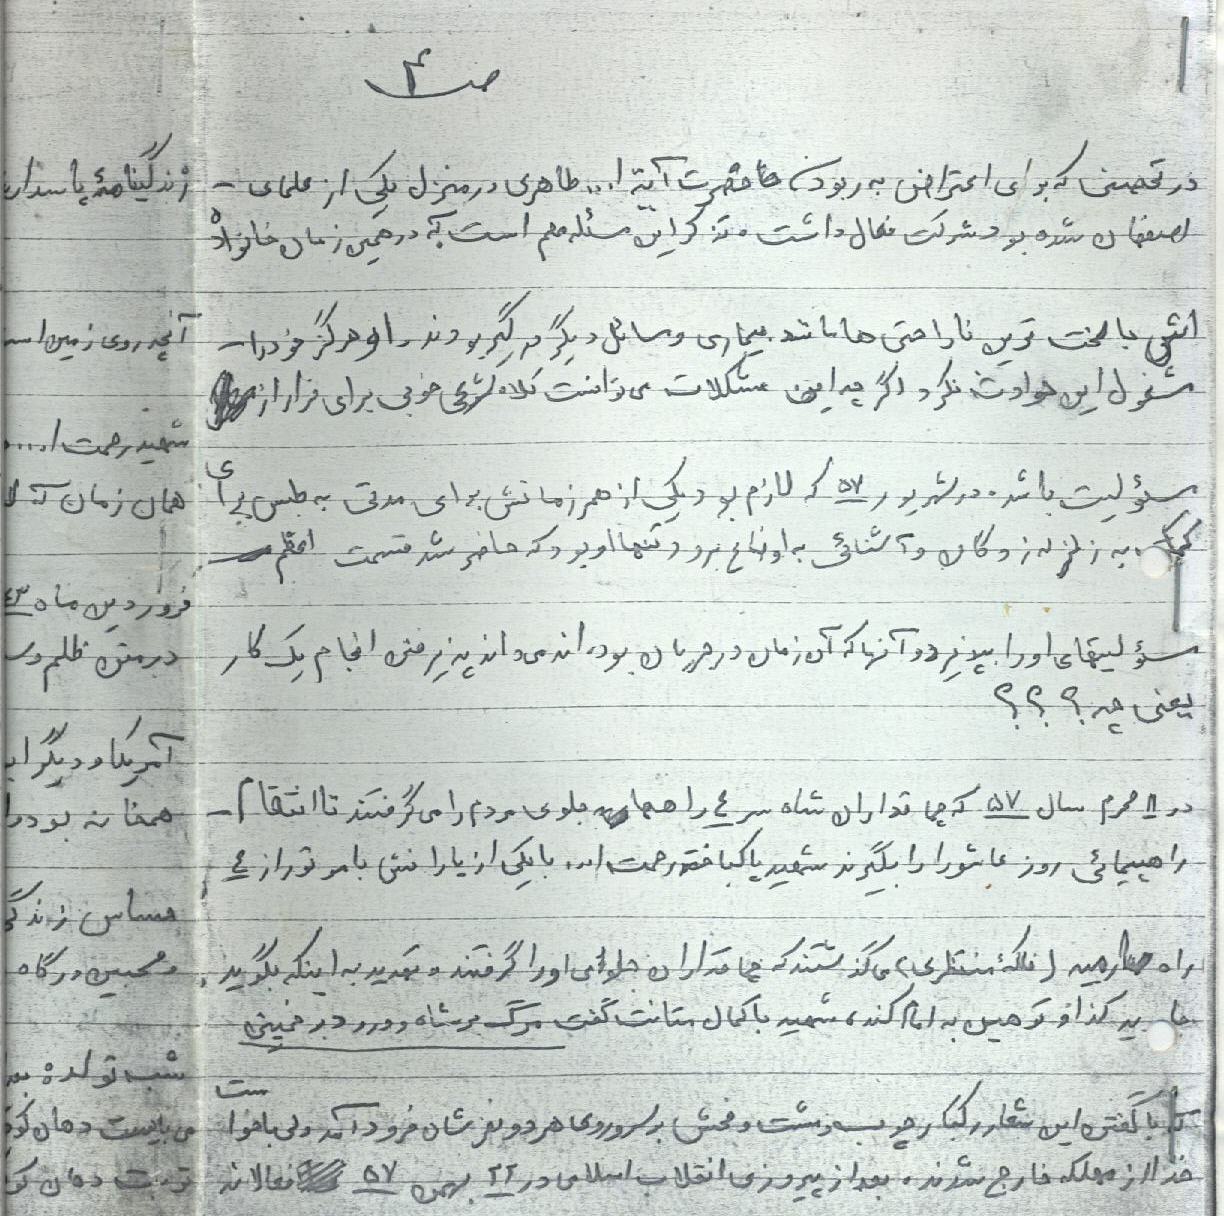 ص ۴
در تحصنی که برای اعتراض به ربودن حضرت آیة ا... طاهری در منزل یکی از علمای -
اصفهان شده بود شرکت فعال داشت. تذکر این مسئله مهم است که در همین زمان خانواده
اش با سخت ترین ناراحتی ها مانند بیماری و مسائل دیگر درگیر بودند و او هرگز خود را -
مشغول این حوادث نکرد اگر چه این مشکلات می توانست کلاه شرعی خوبی برای فرار از
مسؤلیت باشد. در شهریور ۵۷ که لازم بود یکی از همرزمانش برای مدتی به طبس برای
کمک به زلزله زدگان و آشنائی به اوضاع برود تنها او بود که حاضر شد قسمت اعظم
مسؤلیتهای او را بپذیرد و آنها که آن زمان در جریان بوده اند می دانند پذیرفتن انجام یک کار
یعنی چه ؟ ؟ ؟
در ۱۱ محرم سال ۵۷ که چماقداران شاه سر ۴ راهها جلوی مردم را می گرفتند تا انتقام -
راهپیمائی روز عاشورا را بگیرند شهید پاکباخته رحمت ا... با یکی از یارانش با موتور از ۴
راه (فلکهٔ منتظری) می گذشتند که چماقداران جلوی او را گرفتند و تهدید به اینکه بگوید
جاوید کذا و توهین به امام کند، شهید با کمال متانت گفت مرگ بر شاه و درود بر خمینی
که با گفتن این شعار رگبار چوب و مشت و فحش بر سر و روی هر دو نفرشان فرود آمد ولی با خواست
خدا از مهلکه خارج شدند. بعد از پیروزی انقلاب اسلامی در ۲۲ بهمن ۵۷ فعالانه
زندگینامهٔ پاسدار
آنچه روی زمین
شهید رحمت ا...
همان زمان که
فروردین ماه ۴۳
در متن ظلم و
آمریکا و دیگر
همخانه بود
حساس زندگی
و محبین درگاه
شب تولد
می بایست دهان
تربت دهان